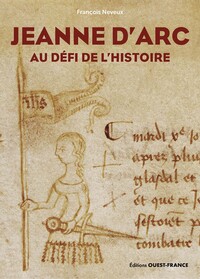 François Neveux
JEANNE D'ARC
AU DÉFI DE L'HISTOIRE
Cmardi xe jo
apres plu
glesdal et
et que ce
sestoiet p
combatre
Éditions OUEST-FRANCE